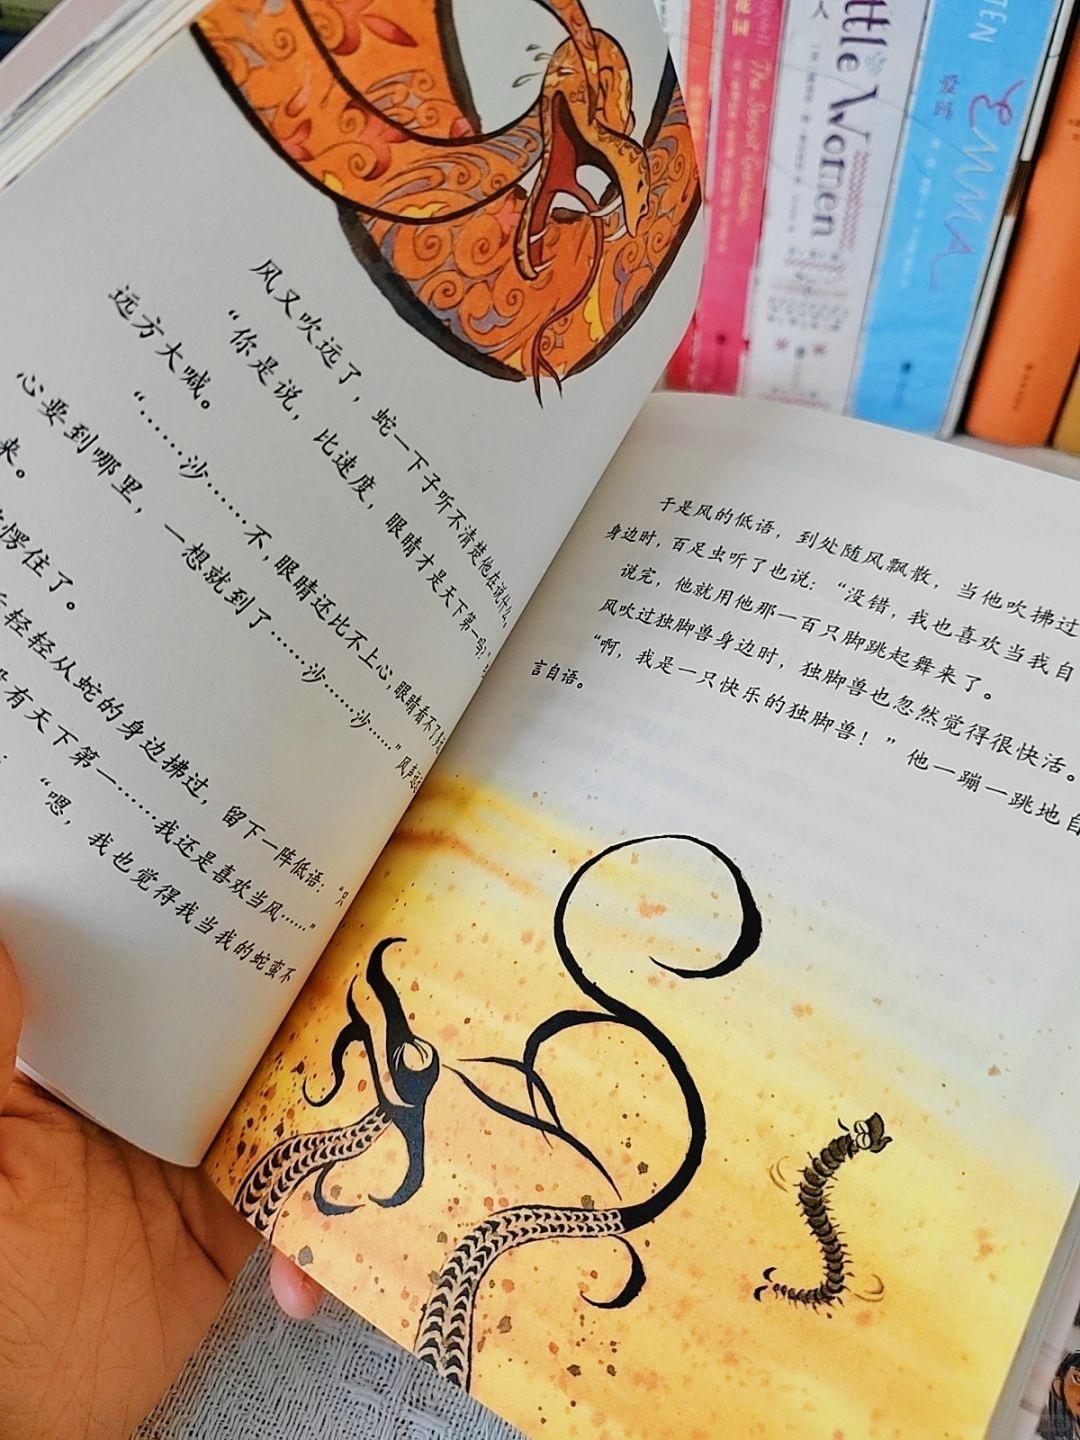 风又吹远了，蛇一下子听不清楚他在说什么，
“你是说，比速度，眼睛才是天下第一吗？”
远方大喊。
“……沙……不，眼睛还比不上心，眼睛看不了多远
心要到哪里，一想就到了……沙……沙……”风声
来。
愣住了。
轻轻从蛇的身边拂过，留下一阵低语：“只
有天下第一……我还是喜欢当风……”
“嗯，我也觉得我当我的蛇蛮不
于是风的低语，到处随风飘散，当他吹拂过
身边时，百足虫听了也说：“没错，我也喜欢当我自
说完，他就用他那一百只脚跳起舞来了。
风吹过独脚兽身边时，独脚兽也忽然觉得很快活。
“啊，我是一只快乐的独脚兽！”他一蹦一跳地自
言自语。
The Secret Garden
Little Women
人
爱玛
EMMA